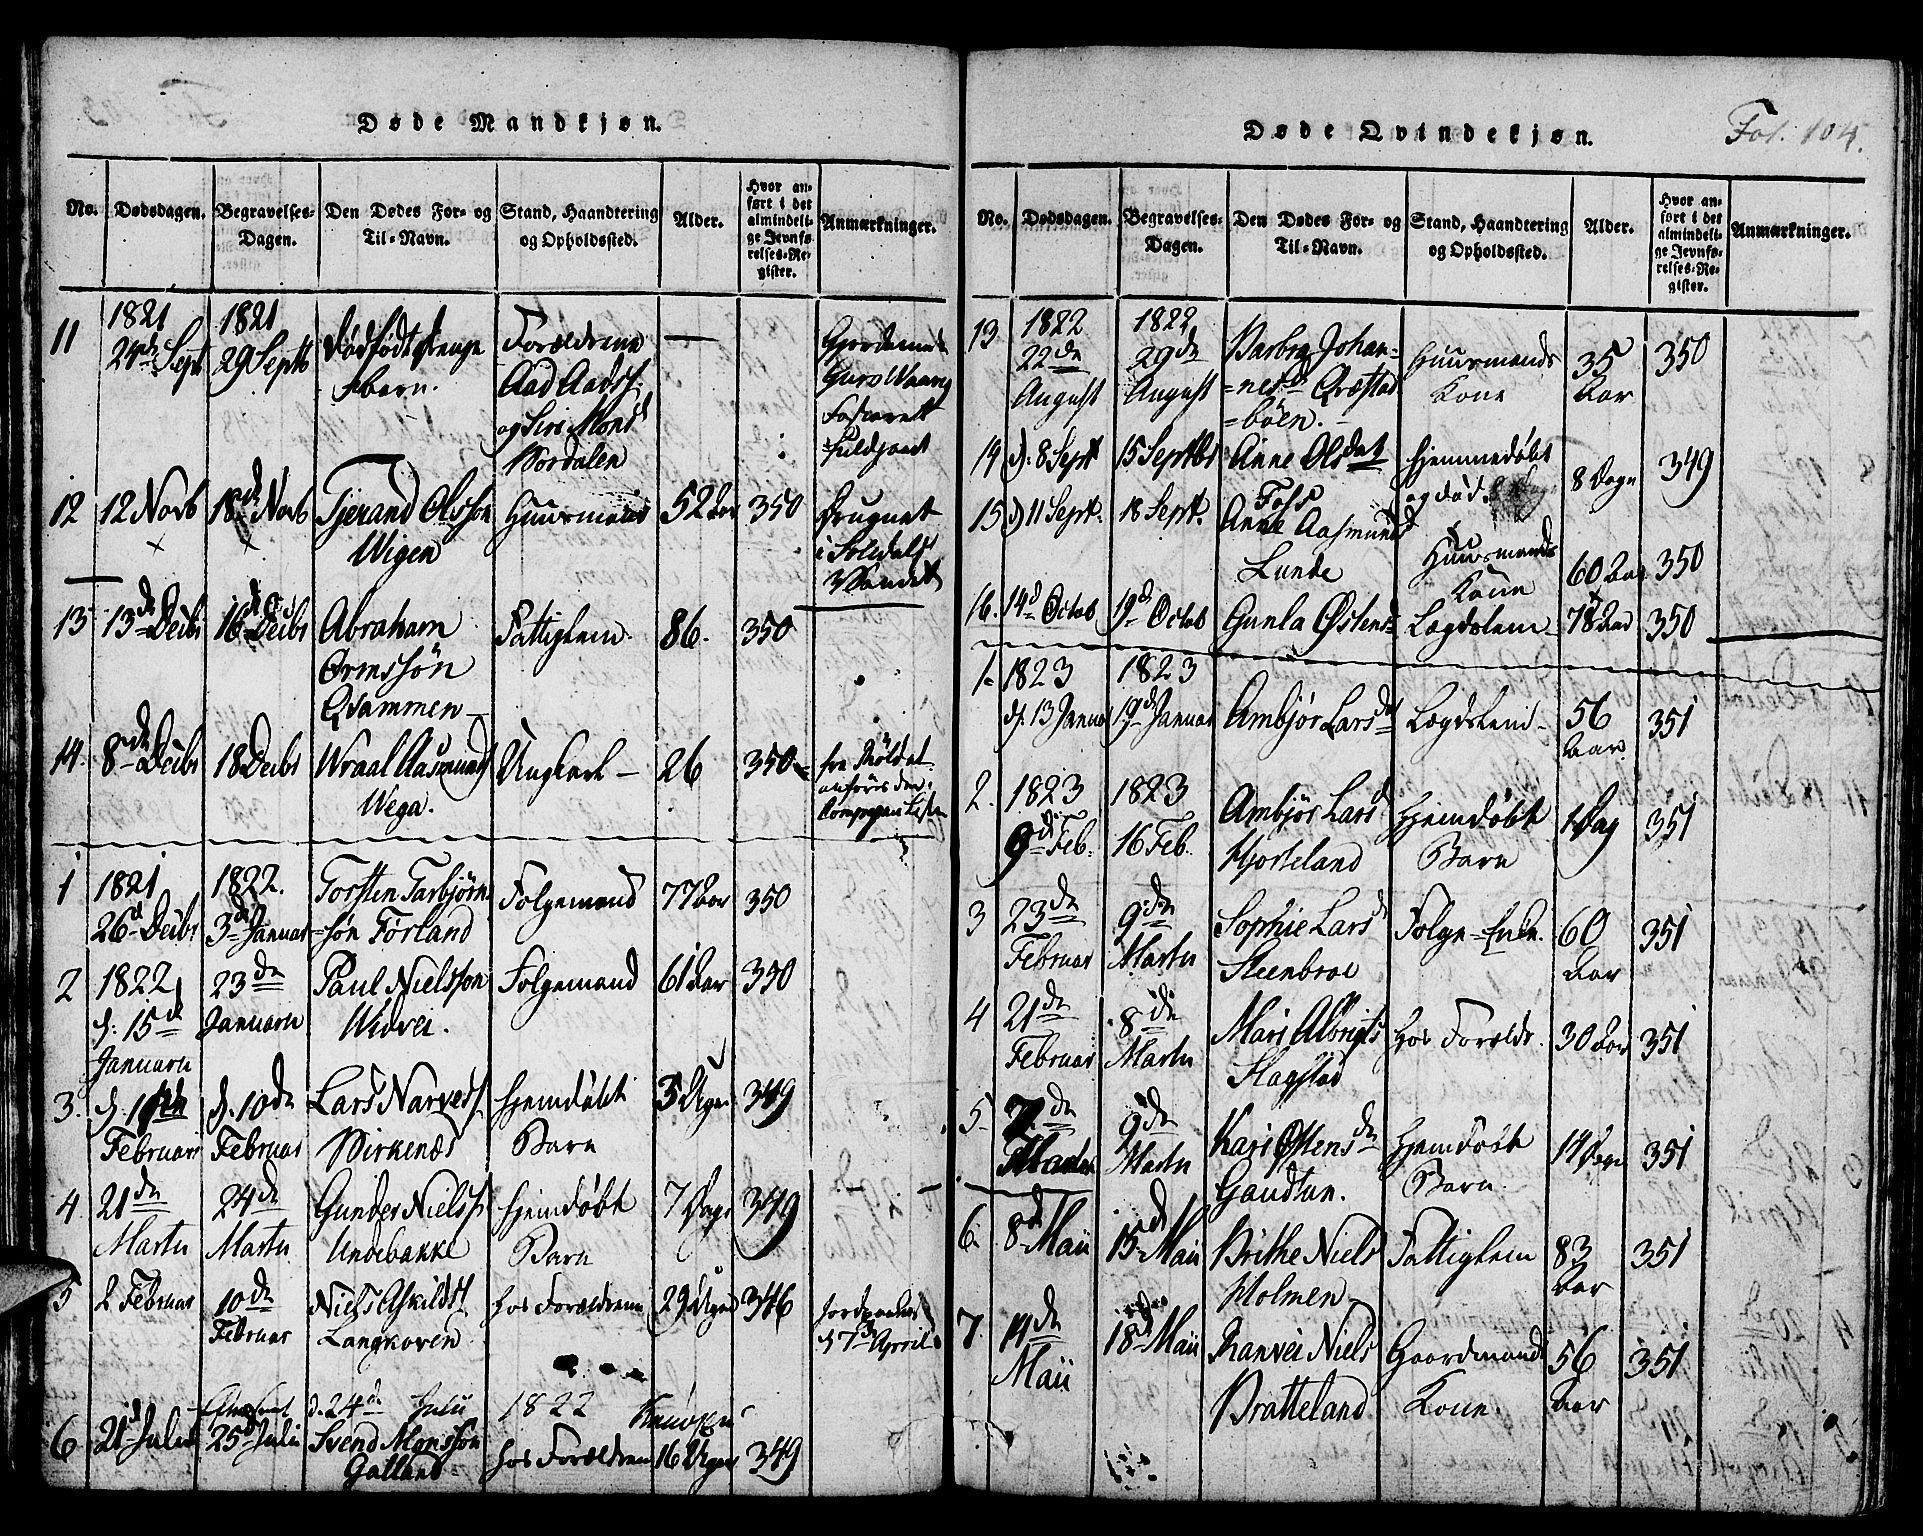 Døde Mandkjøn.
No.
Dødsdagen.
Begravelses-
Dagen.
Den Dødes For- og
Til-Navn.
Stand, Haandtering
og Opholdssted.
Alder.
Hvor an-
ført i det
almindeli-
ge Jevnfø-
relses-Re-
gister.
Anmærkninger.
11
1821
24de Sept
1821
29 Septb
Dødfødt drenge
barn.
Forældrene
Aad Aads.
og Siri Mons
Nordalen
—
12
12 Novb
18de Novb
Tjerand Olsson
Wigen
Huusmand
52 Aar
350
Druknet
i Soldals
Vandet
13
13de Decbr
16de Decbr
Abraham
Ormssøn
Qvammen
Fattiglem
86.
350
14.
8de Decbr
18 Decbr
Wraal Aasmunds
Wega.
Ungkarl
26
350
fra Röldal
anføres den i
1
1821
26d Decbr
1822.
3de Januar
Torsten Tarbjørn-
søn Førland
Folgemand
77 Aar
350
2
1822
d. 15de
Januarii
23de
Januarii
Paul Nielsson
Widvei.
Folgemand
61 Aar
350
3.
d. 1ste
Februar
d. 10de
Februar
Lars Narves
Birkenæs
hjemdøbt
Barn
3 Uger
349
4
21de
Martii
24de
Martii
Gunder Niels
Undebakke
hjemdøbt
Barn
7 Dage
349
5
2 Februar
10de
Februar
Niels Askilds
Langkoven
hos Forældrene
29 Uger
346
d. 7de April
d. 24de Julii 1822
6
21d Julii
25d Julii
Svend Monsson
Galland
hos Forældrene
16 Uger
349
Døde Qvindekjøn.
Fol. 104.
No.
Dødsdagen.
Begravelses-
Dagen.
Den Dødes For- og
Til-Navn.
Stand, Haandtering
og Opholdssted.
Alder.
Hvor an-
ført i det
almindeli-
ge Jevnfø-
relses-Re-
gister.
Anmærkninger.
13
1822
22de
August
1822
29de
August
Barbra Johan-
=nesd Qvæstad
=bøen.
Huusmands
Kone
35
Aar
350
14
d. 8 Sept
15 Septbr
Anne Olsdat
Foss
hjemmedøbt
og død.
8 Dage
349
15
d 11 Sept.
18 Sept.
Anne Aasmunds
Lunde
Huusmands
Kone
60 Aar
350
16.
14d Octob
19d Octob
Gunla Østens
Lægdslem
78 Aar
350
1
1823
d. 13 Januar
1823
19d Januar
Ambjør Larsd
Lægdslem
56
Aar.
351
2.
1823
9de Feb.
1823
16 Feb.
Ambjør Larsd
Hjorteland
Hjemdøbt
Barn
1 Dag
351
3
23de
Februar
9de
Martii
Sophie Larsd
Steenbroe
Folge-Enke.
60
Aar
351
4
21de
Februar
8de
Martii
Mari Albrigts
Slagstad
hos Forældr.
30 Aar
351
5
2de
Martii
9de
Martii
Kari Østensd
Gaudtun.
Hjemdøbt
Barn.
14 Dage
351
6.
8d Maii
15d Maii
Brithe Niels
Holmen
Fattiglem
83
Aar
351
7.
14de
Maii
18d Maii
Ranvei Niels
Bratteland
Gaardmands
Kone
56
Aar
351